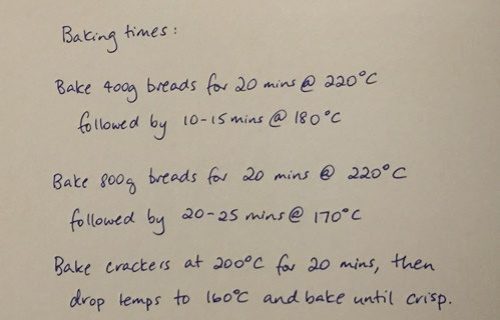 Baking times:
Bake 400g breads for 20 mins @ 220°C
followed by 10-15 mins @ 180°C
Bake 800g breads for 20 mins @ 220°C
followed by 20-25 mins @ 170°C
Bake crackers at 200°C for 20 mins, then
drop temps to 160°C and bake until crisp.